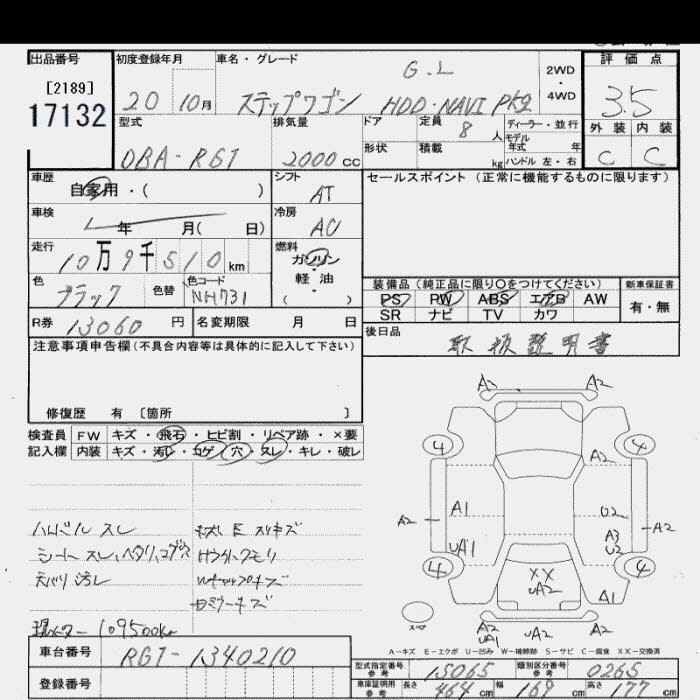 出品番号 初度登録年月 車名・グレード 評価点
[2189]
17132
20 10月 ステップワゴン G.L HDD・NAVI PKg 2WD・4WD 3.5
型式 排気量 ドア 定員 8人 ディーラー・並行 外装 内装
モデル年式 年
DBA-RG1 2000cc 形状 積載 kg ハンドル 左・右 C C
車歴 自家用・( ) シフト AT セールスポイント (正常に機能するものに限ります)
車検 年 月( 日) 冷房 AC
走行 10万9千510km 燃料 ガソリン・軽油 ( )
色 ブラック 色替 色コード NH731
装備品 (純正品に限り〇をつけてください) 新車保証書
PS PW ABS エアB AW 有・無
SR ナビ TV カワ
R券 13060円 名変期限 月 日 後日品 取扱説明書
注意事項申告欄 (不具合内容等は具体的に記入して下さい)
修復歴 有 [箇所 ]
検査員 FW キズ・飛石・ヒビ割・リペア跡・×要
記入欄 内装 キズ・汚レ・コゲ・穴・スレ・キレ・破レ
ハンドル スレ
シート スレ、ヘタリ、コゲ穴
天バリ 汚レ
現メーター 109500km
車台番号 RG1-1340210
登録番号
A2 A2
4 4
A2
A2 A1 U2 A2
UA1 A3
U2
4 4
XX
UA2 A1
スペア A2 UA1 UA2 A2
A-キズ E-エクボ U-凹み W-補修跡 S-サビ C-腐食 XX-交換済
型式指定番号 参考 15065 類別区分番号 参考 0265
車庫証明用 参考 長さ 464cm 幅 169cm 高さ 177cm